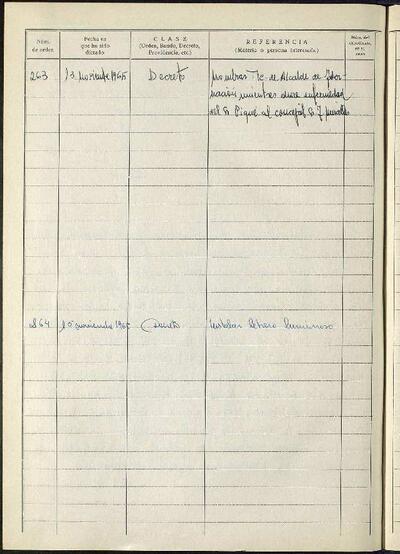 Núm. de orden
Fecha en que ha sido dictado
CLASE
(Orden, Bando, Decreto, Providencia, etc.)
REFERENCIA
(Materia o persona interesada)
263 13 noviembre 1965 Decreto nombrar Tte. de Alcalde de
mientras dure enfermedad
del Sr. Piqué al concejal Sr.
264 noviembre 1965 Decreto Instalar letrero luminoso